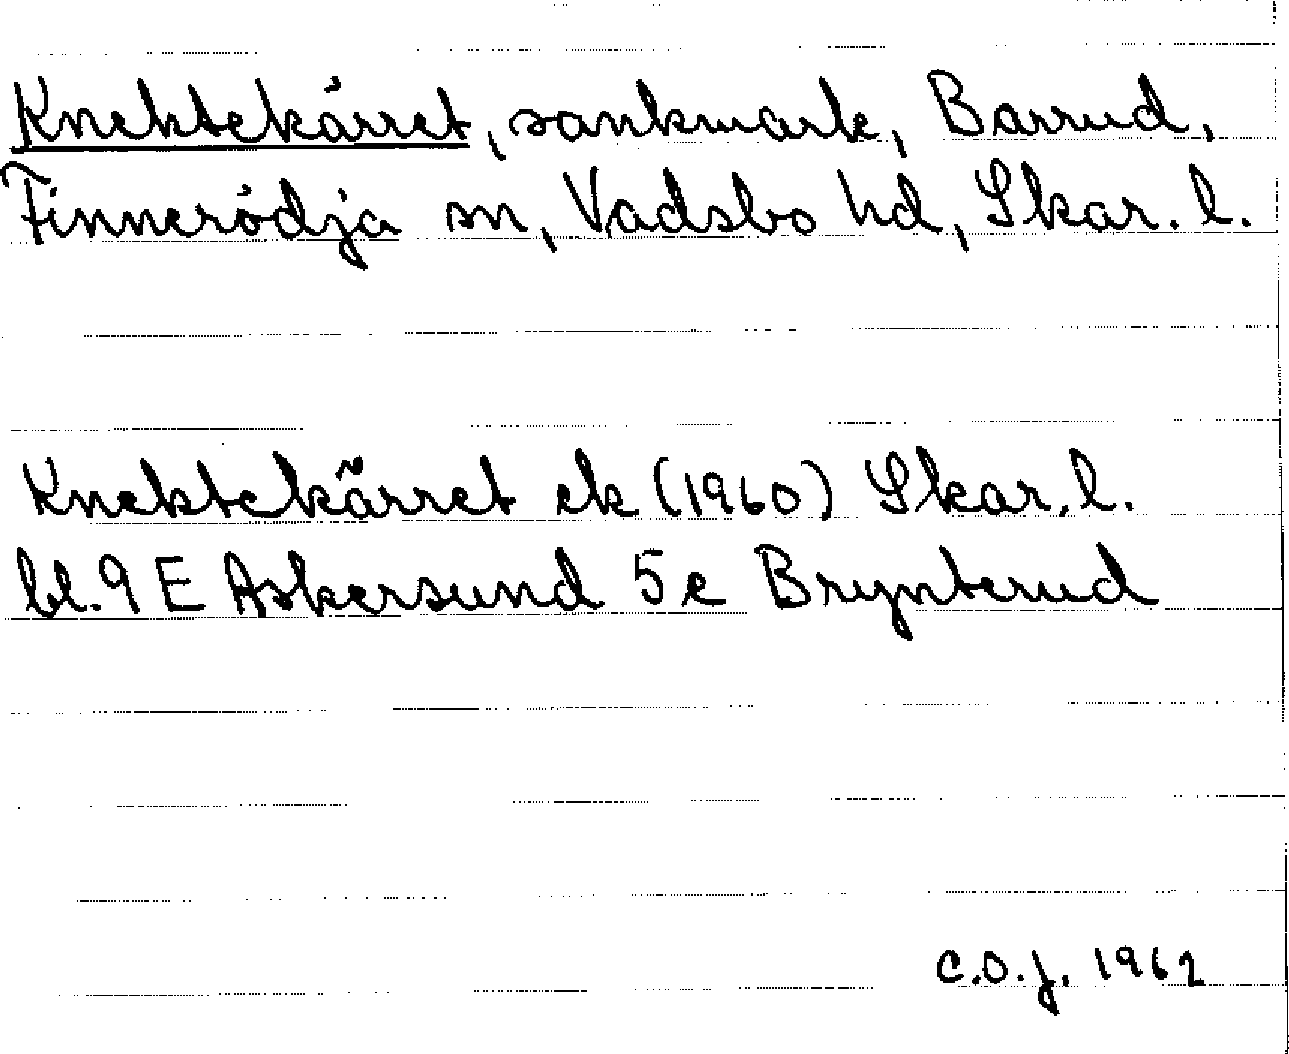 Knektekärret, sankmark, Barrud,
Finnerödja sn, Vadsbo hd, Skar. l.
Knektekärret ek (1960) Skar. l.
bl. 9 E Askersund 5 e Brynterud
C.O.J. 1962